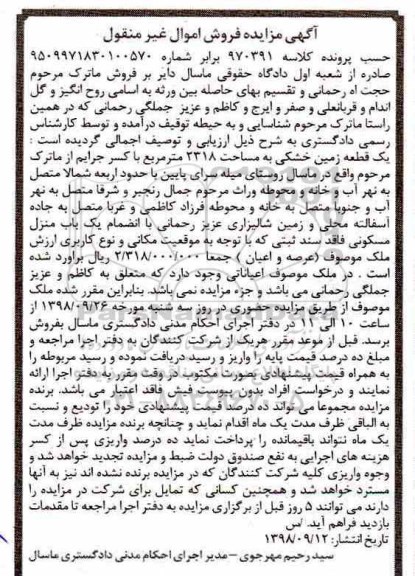 آگهی مزایده فروش اموال غیر منقول
حسب پرونده کلاسه ۹۷۰۳۹۱ برابر شماره ۹۵۰۹۹۷۱۸۳۰۱۰۰۵۷۰
صادره از شعبه اول دادگاه حقوقی ماسال دایر بر فروش ماترک مرحوم
حجت اه رحمانی و تقسیم بهای حاصله بین ورثه به اسامی روح انگیز و گل
اندام و قربانعلی و صفر و ایرج و کاظم و عزیز جملگی رحمانی که در همین
راستا ماترک مرحوم شناسایی و به حیطه توقیف درآمده و توسط کارشناس
رسمی دادگستری به شرح ذیل ارزیابی و توصیف اجمالی گردیده است :
یک قطعه زمین خشکی به مساحت ۲۳۱۸ مترمربع با کسر جرایم از ماترک
مرحوم واقع در ماسال روستای میله سرای پایین با حدود اربعه شمالا متصل
به نهر آب و خانه و محوطه وراث مرحوم جمال رنجبر و شرقا متصل به نهر
آب و جنوبا متصل به خانه و محوطه فرزاد کاظمی و غربا متصل به جاده
آسفالته محلی و زمین شالیزاری عزیز رحمانی با انضمام یک باب منزل
مسکونی فاقد سند ثبتی که با توجه به موقعیت مکانی و نوع کاربری ارزش
ملک موصوف (عرصه و اعیان ) جمعا ۲/۳۱۸/۰۰۰/۰۰۰ ریال برآورد شده
است . در ملک موصوف اعیاناتی وجود دارد که متعلق به کاظم و عزیز
جملگی رحمانی می باشد و جزء مزایده نمی باشد. بنابراین مقرر شده ملک
موصوف از طریق مزایده حضوری در روز سه شنبه مورخه ۱۳۹۸/۰۹/۲۶ از
ساعت ۱۰ الی ۱۲ در دفتر اجرای احکام مدنی دادگستری ماسال بفروش
برسد. قبل از موعد مقرر هریک از شرکت کنندگان به دفتر اجرا مراجعه و
مبلغ ده درصد قیمت پایه را واریز و رسید دریافت نموده و رسید مربوطه را
به همراه قیمت پیشنهادی بصورت مکتوب در وقت مقرر به دفتر اجرا ارائه
نمایند و درخواست افراد بدون پیوست فیش فاقد اعتبار می باشد. برنده
مزایده مجموعا می تواند ده درصد قیمت پیشنهادی خود را تودیع و نسبت
به الباقی ظرف مدت یک ماه اقدام نماید و چنانچه برنده مزایده ظرف مدت
یک ماه نتواند باقیمانده را پرداخت نماید ده درصد واریزی پس از کسر
هزینه های اجرایی به نفع صندوق دولت ضبط و مزایده تجدید خواهد شد و
وجوه واریزی کلیه شرکت کنندگان که در مزایده برنده نشده اند نیز به آنها
مسترد خواهد شد و همچنین کسانی که تمایل برای شرکت در مزایده را
دارند می توانند ۵ روز قبل از برگزاری مزایده به دفتر اجرا مراجعه تا مقدمات
بازدید فراهم آید.
تاریخ انتشار: ۱۳۹۸/۰۹/۱۲
سید رحیم مهرجوی – مدیر اجرای احکام مدنی دادگستری ماسال